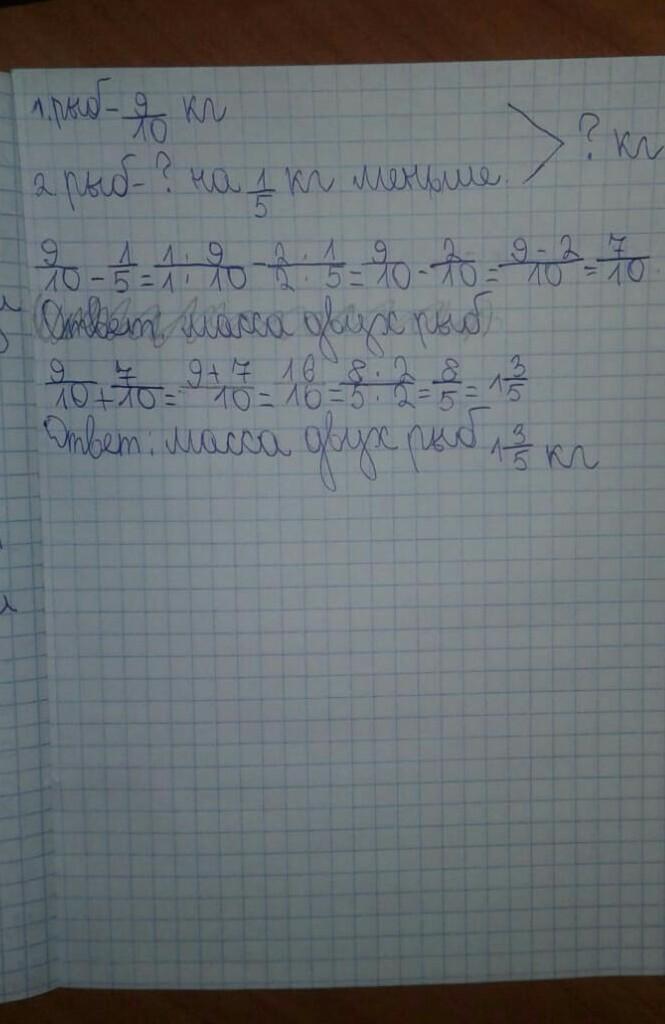 1. рыб - 9/10 кг
? кг
2. рыб - ? на 1/5 кг меньше.
9/10 - 1/5 = 1 · 9/1 · 10 - 2 · 1/2 · 5 = 9/10 - 2/10 = 9 - 2/10 = 7/10
Ответ масса двух рыб
9/10 + 7/10 = 9 + 7/10 = 16/10 = 8 · 2/5 · 2 = 8/5 = 1 3/5
Ответ: масса двух рыб 1 3/5 кг